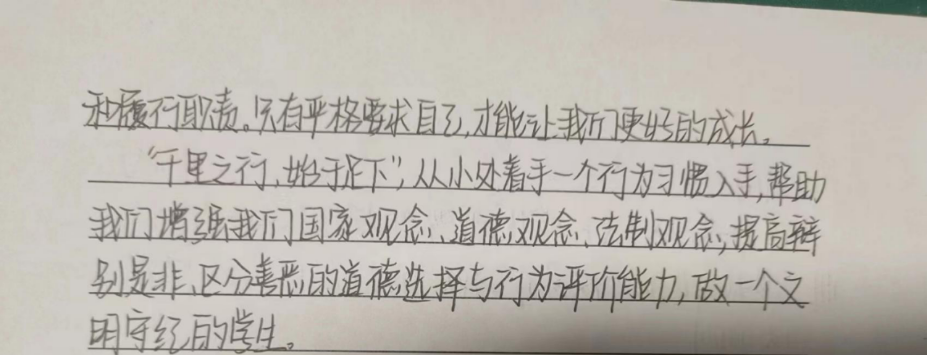 和履行职责。只有严格要求自己,才能让我们更好的成长。
“千里之行,始于足下”,从小处着手一个行为习惯入手,帮助
我们增强我们国家观念、道德观念、法制观念,提高辩
别是非、区分善恶的道德选择与行为评价能力,做一个文
明守纪的学生。